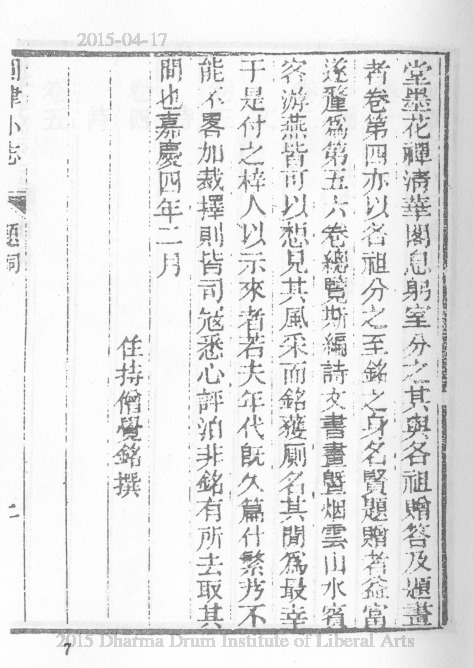 2015-04-17
堂墨花禪清華閣息躬室分之其與各祖贈答及題畫
者卷第四亦以各祖分之至銘之身名賢題贈者益富
遂釐為第五六卷總覽斯編詩文書畫暨烟雲山水賓
客游燕皆可以想見其風采而銘獲厠名其間為最幸
于是付之梓人以示來者若夫年代旣久篇什繁夥不
能不畧加裁擇則皆司冦悉心評泊非銘有所去取其
間也嘉慶四年二月
住持僧覺銘撰
小志
題詞
二
2015 Dharma Drum Institute of Liberal Arts
7